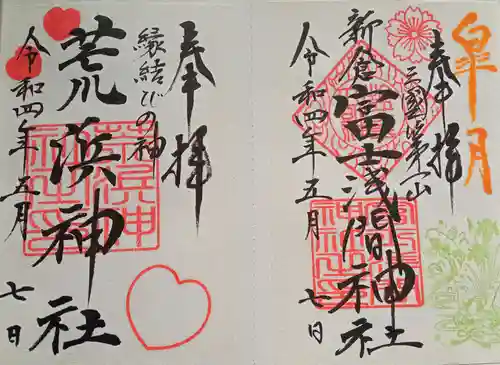 皐月
奉拝
三國第一山
新倉富士浅間神社
令和四年五月七日
奉拝
縁結びの神
荒川浜神社
令和四年五月七日